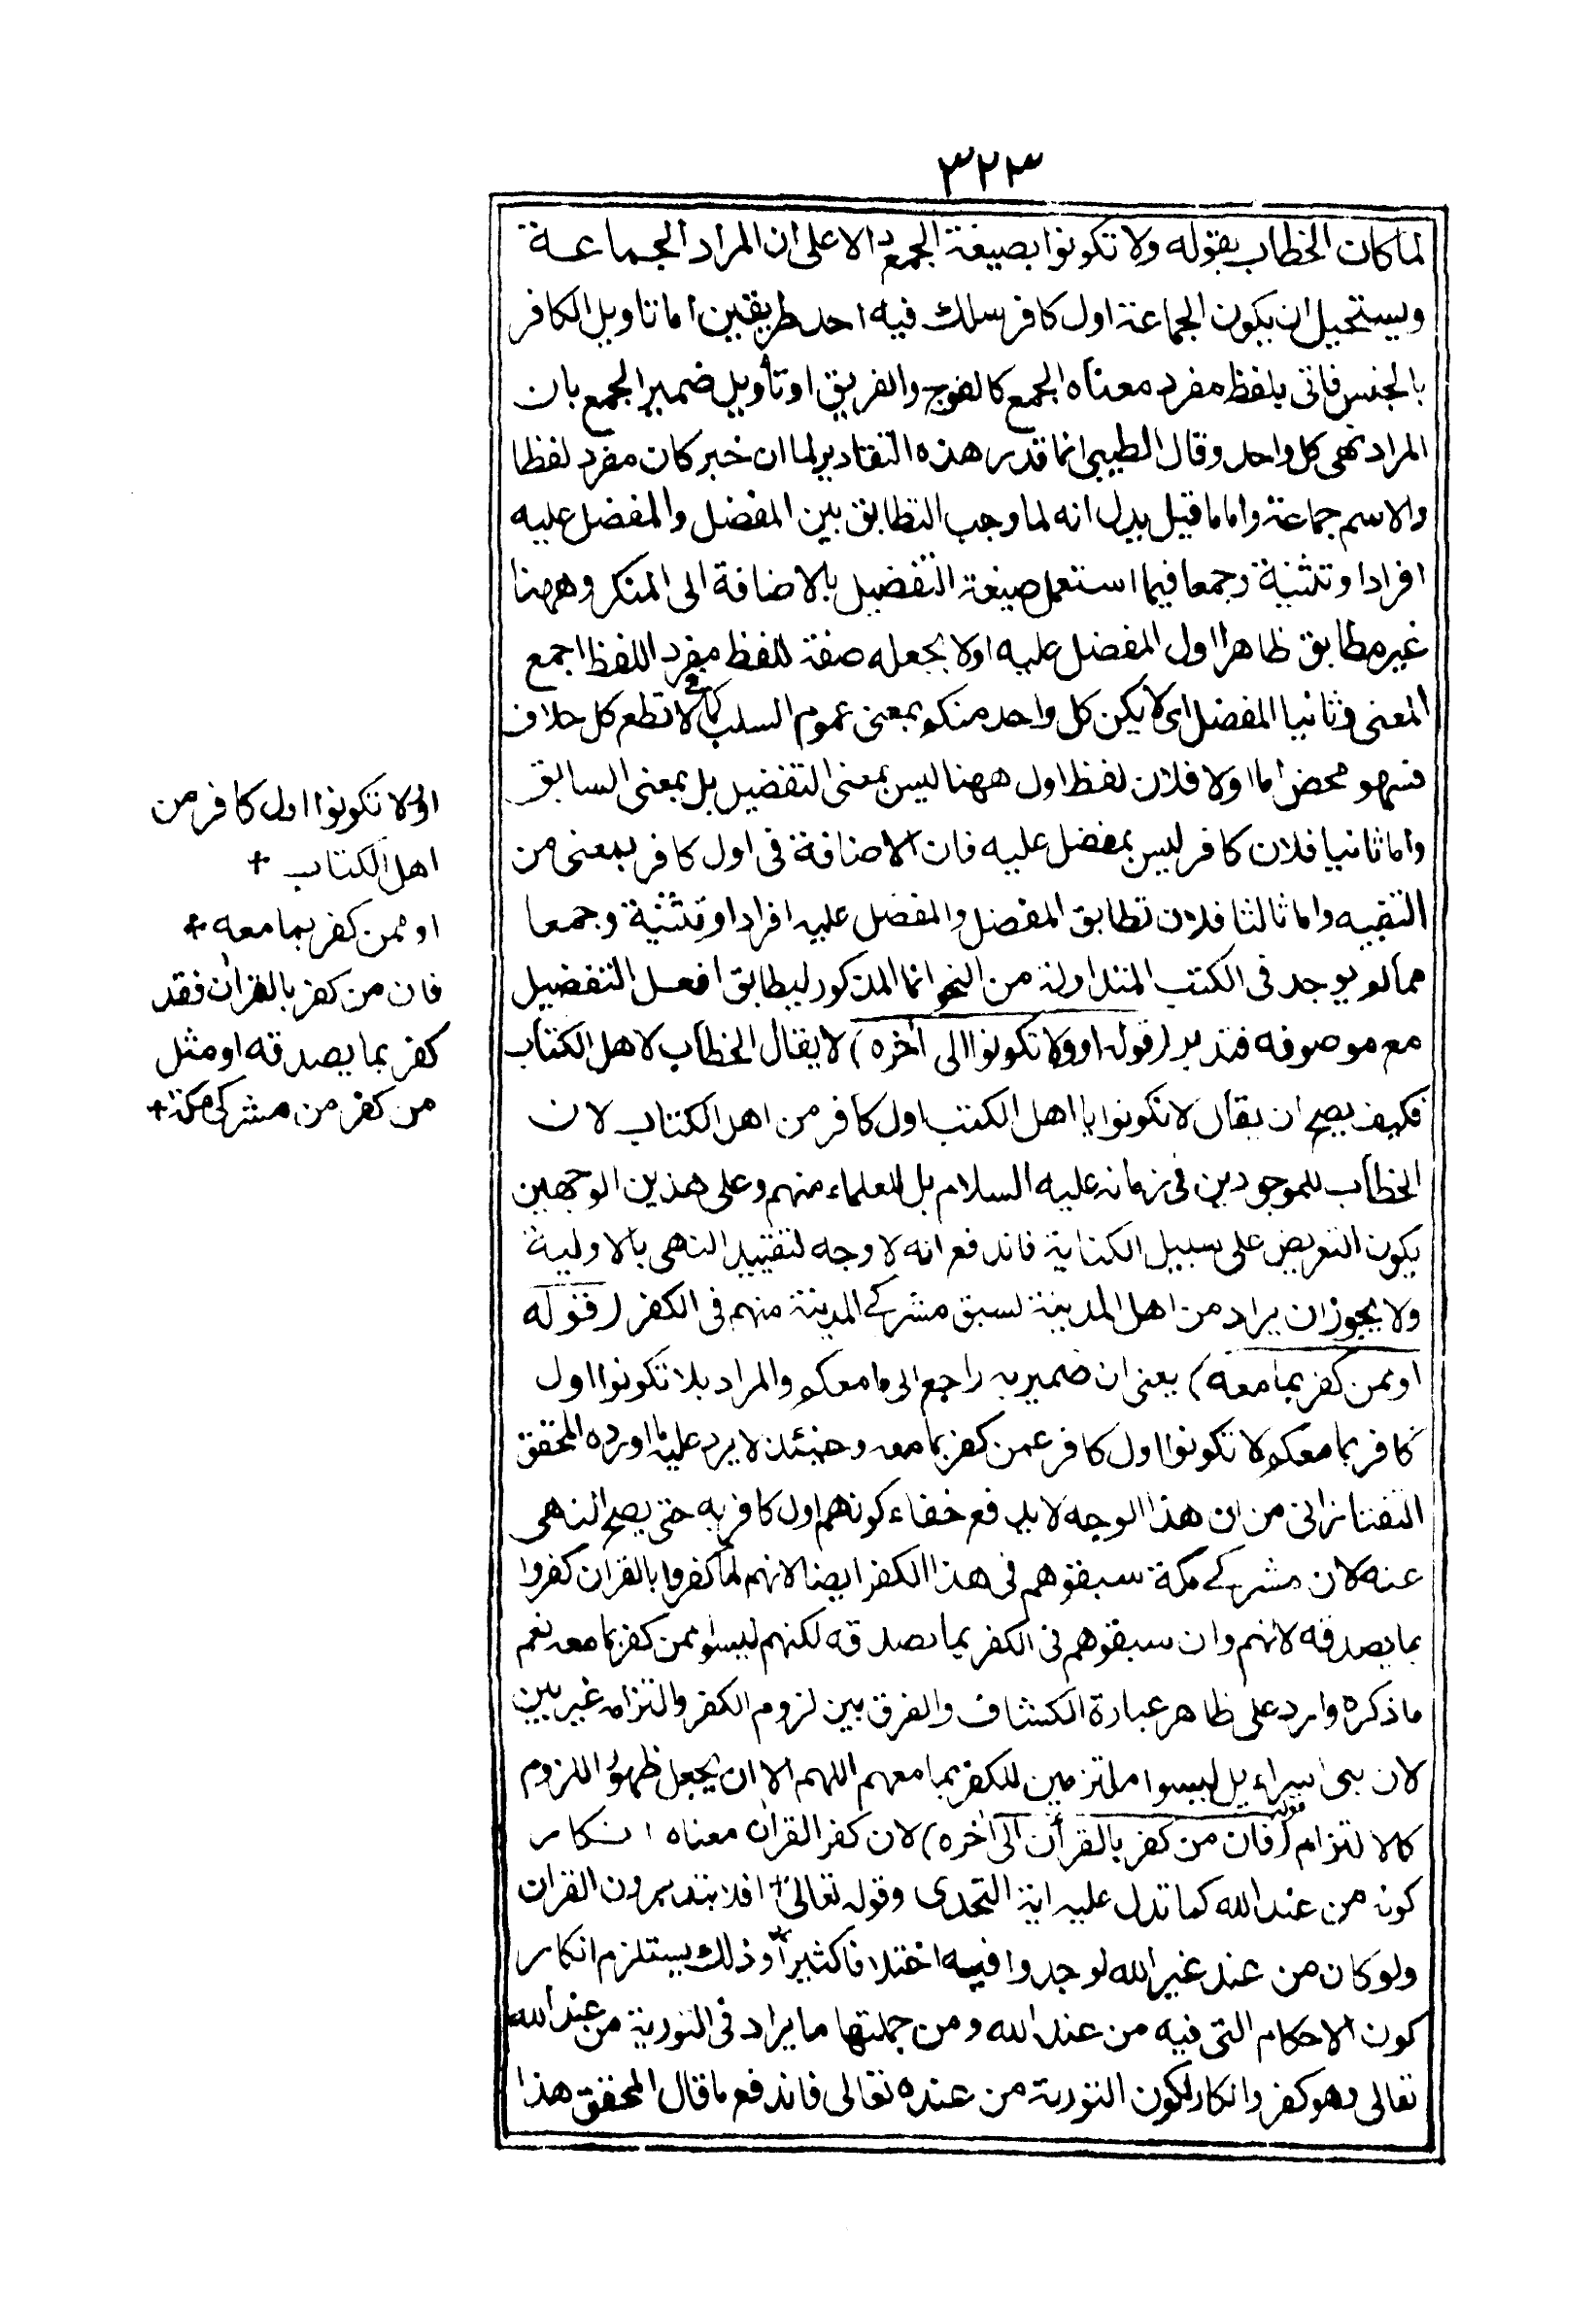 ٣٢٣
لما كان الخطاب بقوله ولا تكونوا بصيغة الجمع دالا على ان المراد الجماعة
ويستحيل ان يكون الجماعة اول كافر سلك فيه احد طريقين اما تاويل الكافر
بالجنس فاتى بلفظ مفرد معناه الجمع كالفوج والفريق او تأويل ضمير الجمع بان
المراد نهى كل واحد وقال الطيبى انما قدر هذه التقادير لما ان خبر كان مفرد لفظا
والاسم جماعة واما ما قيل بدل انه لما وجب التطابق بين المفضل والمفضل عليه
افرادا وتثنية وجمعا فيما استعمل صيغة التفضيل بالاضافة الى المنكر وههنا
غير مطابق ظاهرا اول المفضل عليه اولا بجعله صفة للفظ مفرد اللفظ اجمع
المعنى وثانيا المفضل اى لا يكن كل واحد منكم بمعنى عموم السلب كما فى لا تطع كل حلاف
فسهو محض اما اولا فلان لفظ اول ههنا ليس بمعنى التفضيل بل بمعنى السابق
واما ثانيا فلان كافر ليس بمفضل عليه فان الاضافة فى اول كافر بمعنى من
التقييه واما ثالثا فلان تطابق المفضل والمفضل عليه افرادا وتثنية وجمعا
مما لم يوجد فى الكتب المتداولة من النحو انما المذكور ليطابق افعل التفضيل
مع موصوفه فتدبر (قوله او ولا تكونوا الى أخره) لا يقال الخطاب لاهل الكتاب
فكيف يصح ان يقال لا تكونوا يا اهل الكتب اول كافر من اهل الكتاب لان
الخطاب للموجودين فى زمانه عليه السلام بل للعلماء منهم وعلى هذين الوجهين
يكون التعريض على سبيل الكناية فاندفع انه لا وجه لتقييد النهى بالاولية
ولا يجوز ان يراد من اهل المدينة لسبق مشركے المدينة منهم فى الكفر (قوله
او ممن كفر بما معه) يعنى ان ضمير به راجع الى ما معكم والمراد بلا تكونوا اول
كافر بما معكم لا تكونوا اول كافر ممن كفر بما معه وحينئذ لا يرد عليه ما اورده المحقق
التفتازانى من ان هذا الوجه لا يدفع خفاء كونهم اول كافر به حتى يصح النهى
عنه لان مشركے مكة سبقوهم فى هذا الكفر ايضا لانهم لما كفروا بالقران كفروا
بما يصدقه لانهم وان سبقوهم فى الكفر بما يصدقه لكنهم ليسوا ممن كفر بما معه نعم
ما ذكره وارد على ظاهر عبارة الكشاف والفرق بين لزوم الكفر والتزامه غير بين
لان بنى اسراءيل ليسوا ملتزمين للكفر بما معهم اللهم الا ان يجعل ظهور اللزوم
كالالتزام (قوله فان من كفر بالقرأن الى أخره) لان كفر القرأن معناه انكار
كونه من عند الله كما تدل عليه اية التحدى وقوله تعالى افلا يتدبرون القران
ولو كان من عند غير الله لوجدوا فيه اختلافا كثيرا وذلك يستلزم انكار
كون الاحكام التى فيه من عند الله ومن جملتها ما يراد فى التورية من عند الله
تعالى وهو كفر وانكار لكون التورية من عنده تعالى فاندفع ما قال المحقق هذا
او لا تكونوا اول كافر من
اهل الكتاب +
او ممن كفر بما معه +
فان من كفر بالقرأن فقد
كفر بما يصدقه او مثل
من كفر من مشركى مكة +